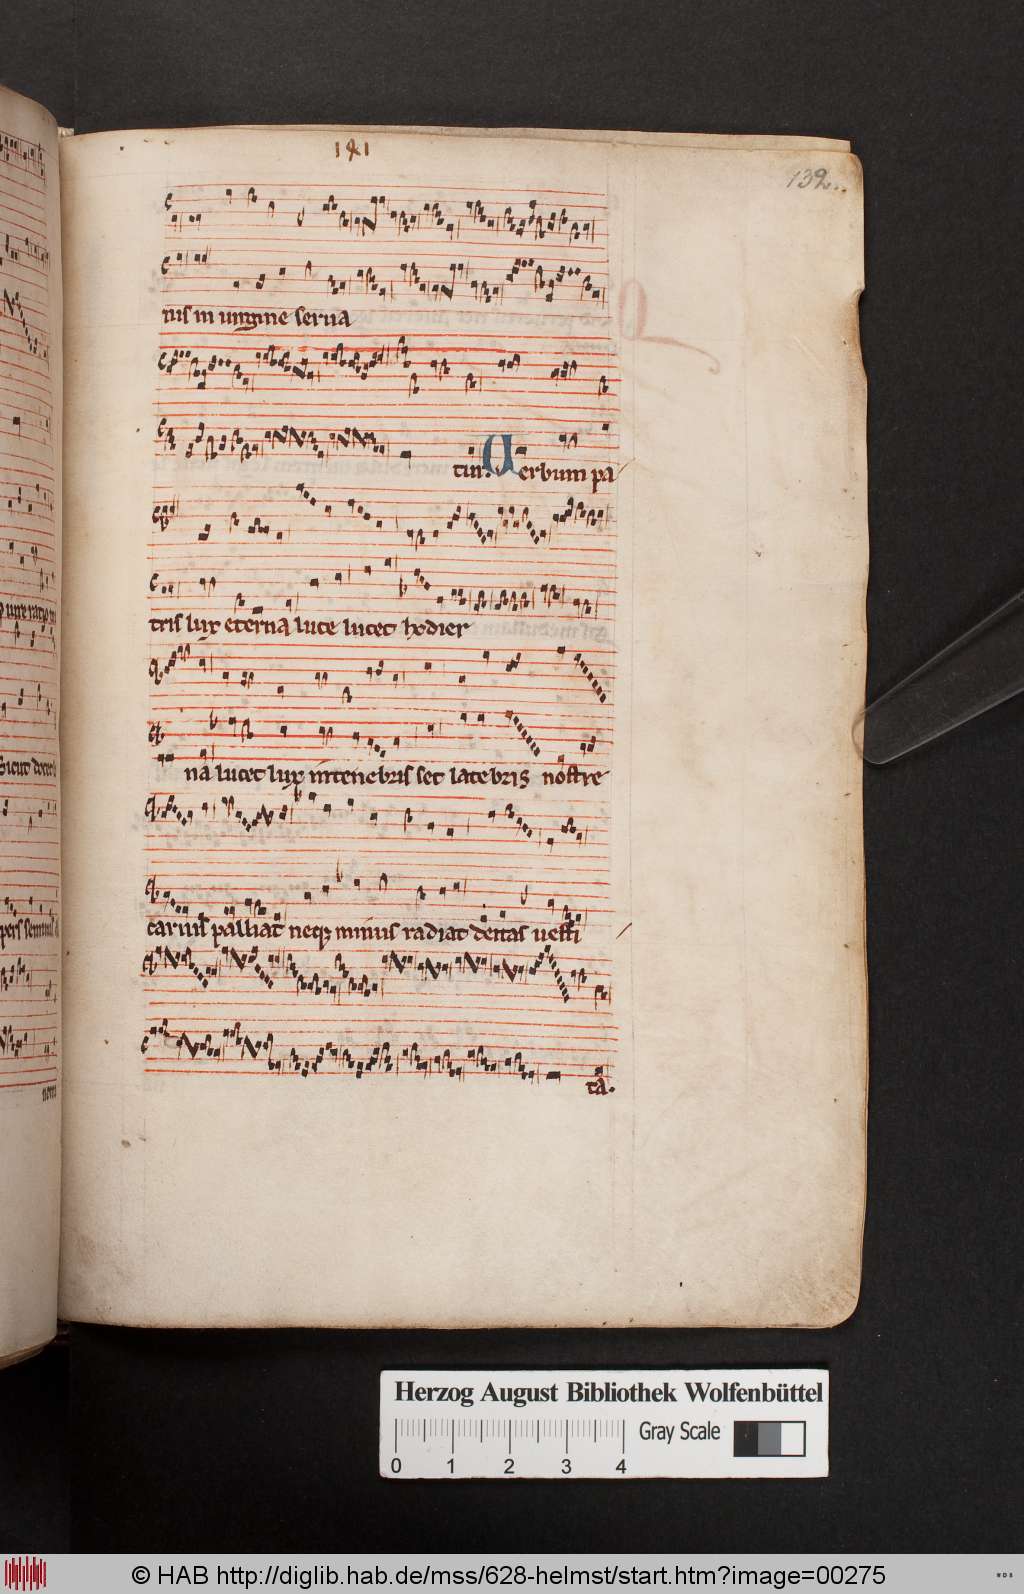 141
132
nis in uirgine serua
tur. Verbum pa
tris lux eterna luce lucet hodier
na lucet lux in tenebris set latebris nostre
carnis palliat neq; minus radiat deitas uesti
ta.
Herzog August Bibliothek Wolfenbüttel
Gray Scale
0 1 2 3 4
© HAB http://diglib.hab.de/mss/628-helmst/start.htm?image=00275